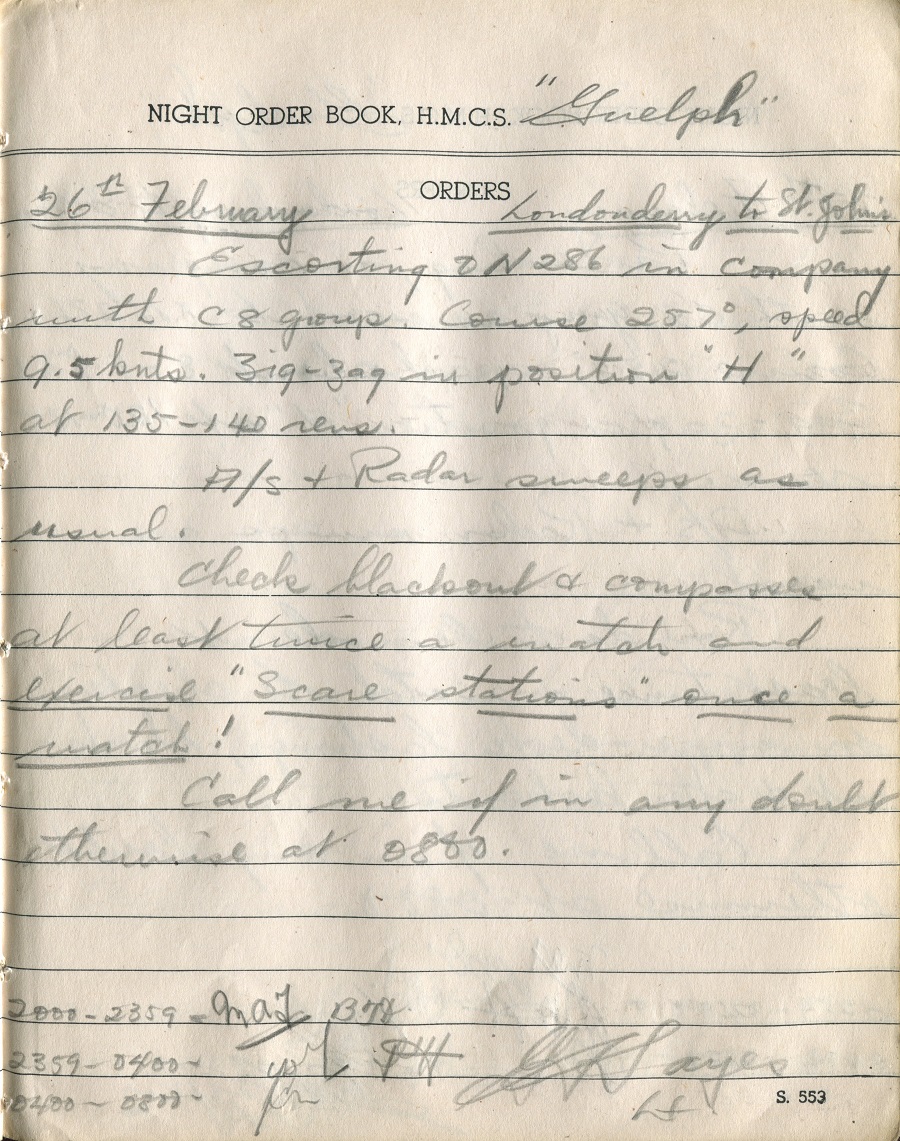 NIGHT ORDER BOOK, H.M.C.S. "Guelph"
ORDERS
26th February Londonderry to St. John's
Escorting ON 286 in company
with C8 group. Course 257°, speed
9.5 knts. Zig-zag in position "H"
at 135-140 revs.
A/S + Radar sweeps as
usual.
Check blackout & compasses
at least twice a watch and
exercise "Scare stations" once a
watch!
Call me if in any doubt
otherwise at 0800.
2000-2359-
2359-0400-
0400-0800-
S. 553